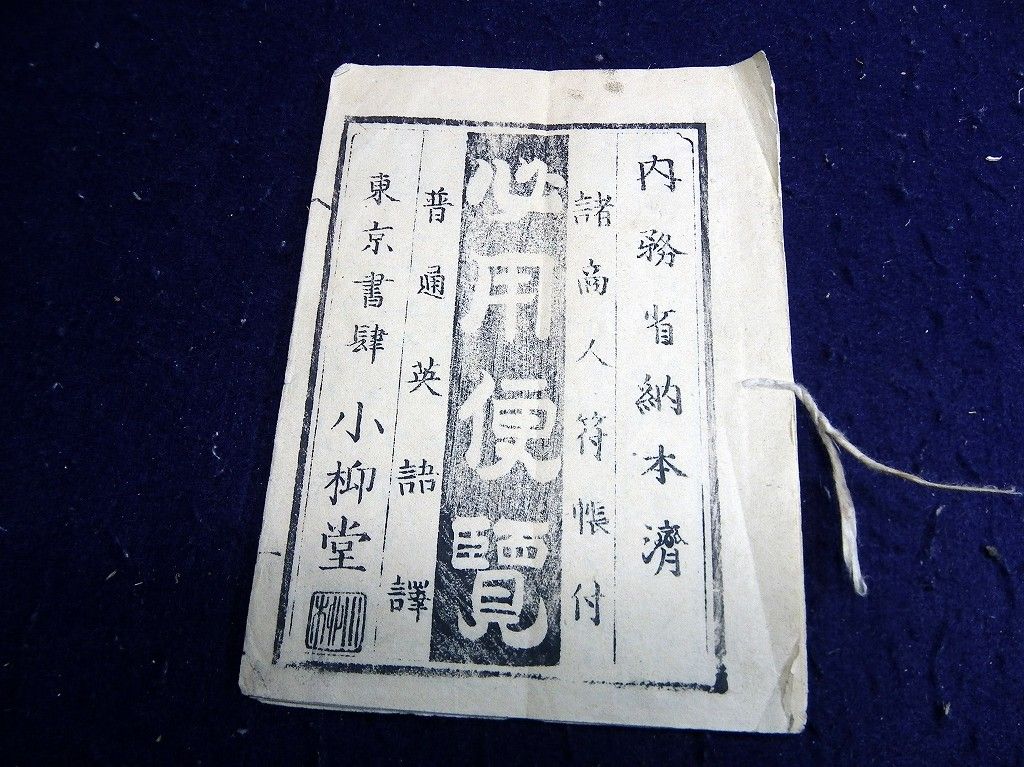 内務省納本濟
諸商人符帳付
必用便覽
普通英語譯
東京書肆 小柳堂